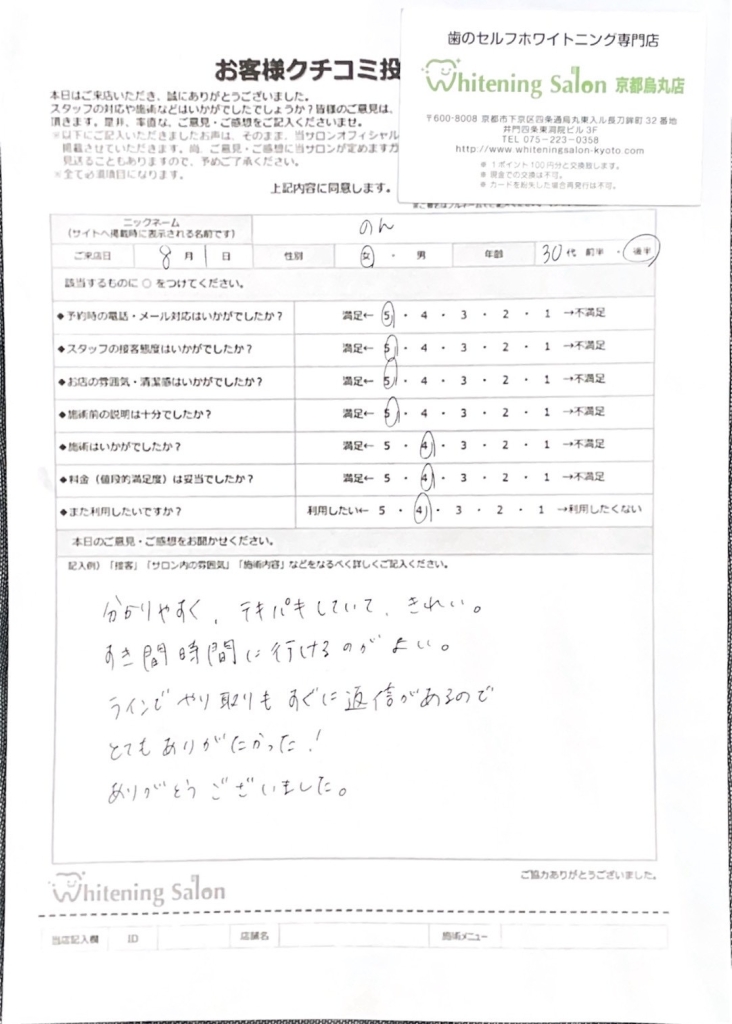 歯のセルフホワイトニング専門店
Whitening Salon 京都烏丸店
〒600-8008 京都市下京区四条通烏丸東入ル長刀鉾町 32 番地
井門四条東洞院ビル 3F
TEL 075-223-0358
http://www.whiteningsalon-kyoto.com
※ 1ポイント100円分と交換致します。
※ 現金での交換は不可。
※ カードを紛失した場合再発行は不可。
お客様クチコミ投
本日はご来店いただき、誠にありがとうございました。
スタッフの対応や施術などはいかがでしたでしょうか？皆様のご意見は、
頂きます。是非、率直な、ご意見・ご感想をご記入くださいませ。
※以下にご記入いただきましたお声は、そのまま、当サロンオフィシャル
掲載させていただきます。尚、ご意見・ご感想に当サロンが定めますガ
見送ることもありますので、予めご了承ください。
※全て必須項目になります。
上記内容に同意します。
ニックネーム
(サイトへ掲載時に表示される名前です)
のん
ご来店日 8 月 1 日 性別 女 ・ 男 年齢 30 代 前半 ・ 後半
該当するものに ○ をつけてください。
◆予約時の電話・メール対応はいかがでしたか？ 満足← 5 ・ 4 ・ 3 ・ 2 ・ 1 →不満足
◆スタッフの接客態度はいかがでしたか？ 満足← 5 ・ 4 ・ 3 ・ 2 ・ 1 →不満足
◆お店の雰囲気・清潔感はいかがでしたか？ 満足← 5 ・ 4 ・ 3 ・ 2 ・ 1 →不満足
◆施術前の説明は十分でしたか？ 満足← 5 ・ 4 ・ 3 ・ 2 ・ 1 →不満足
◆施術はいかがでしたか？ 満足← 5 ・ 4 ・ 3 ・ 2 ・ 1 →不満足
◆料金（値段的満足度）は妥当でしたか？ 満足← 5 ・ 4 ・ 3 ・ 2 ・ 1 →不満足
◆また利用したいですか？ 利用したい← 5 ・ 4 ・ 3 ・ 2 ・ 1 →利用したくない
本日のご意見・ご感想をお聞かせください。
記入例）「接客」「サロン内の雰囲気」「施術内容」などをなるべく詳しくご記入ください。
分かりやすく、テキパキしていて、きれい。
すき間時間に行けるのがよい。
ラインでやり取りもすぐに返信があるので
とてもありがたかった！
ありがとうございました。
ご協力ありがとうございました。
Whitening Salon
当店記入欄 ID 店舗名 施術メニュー